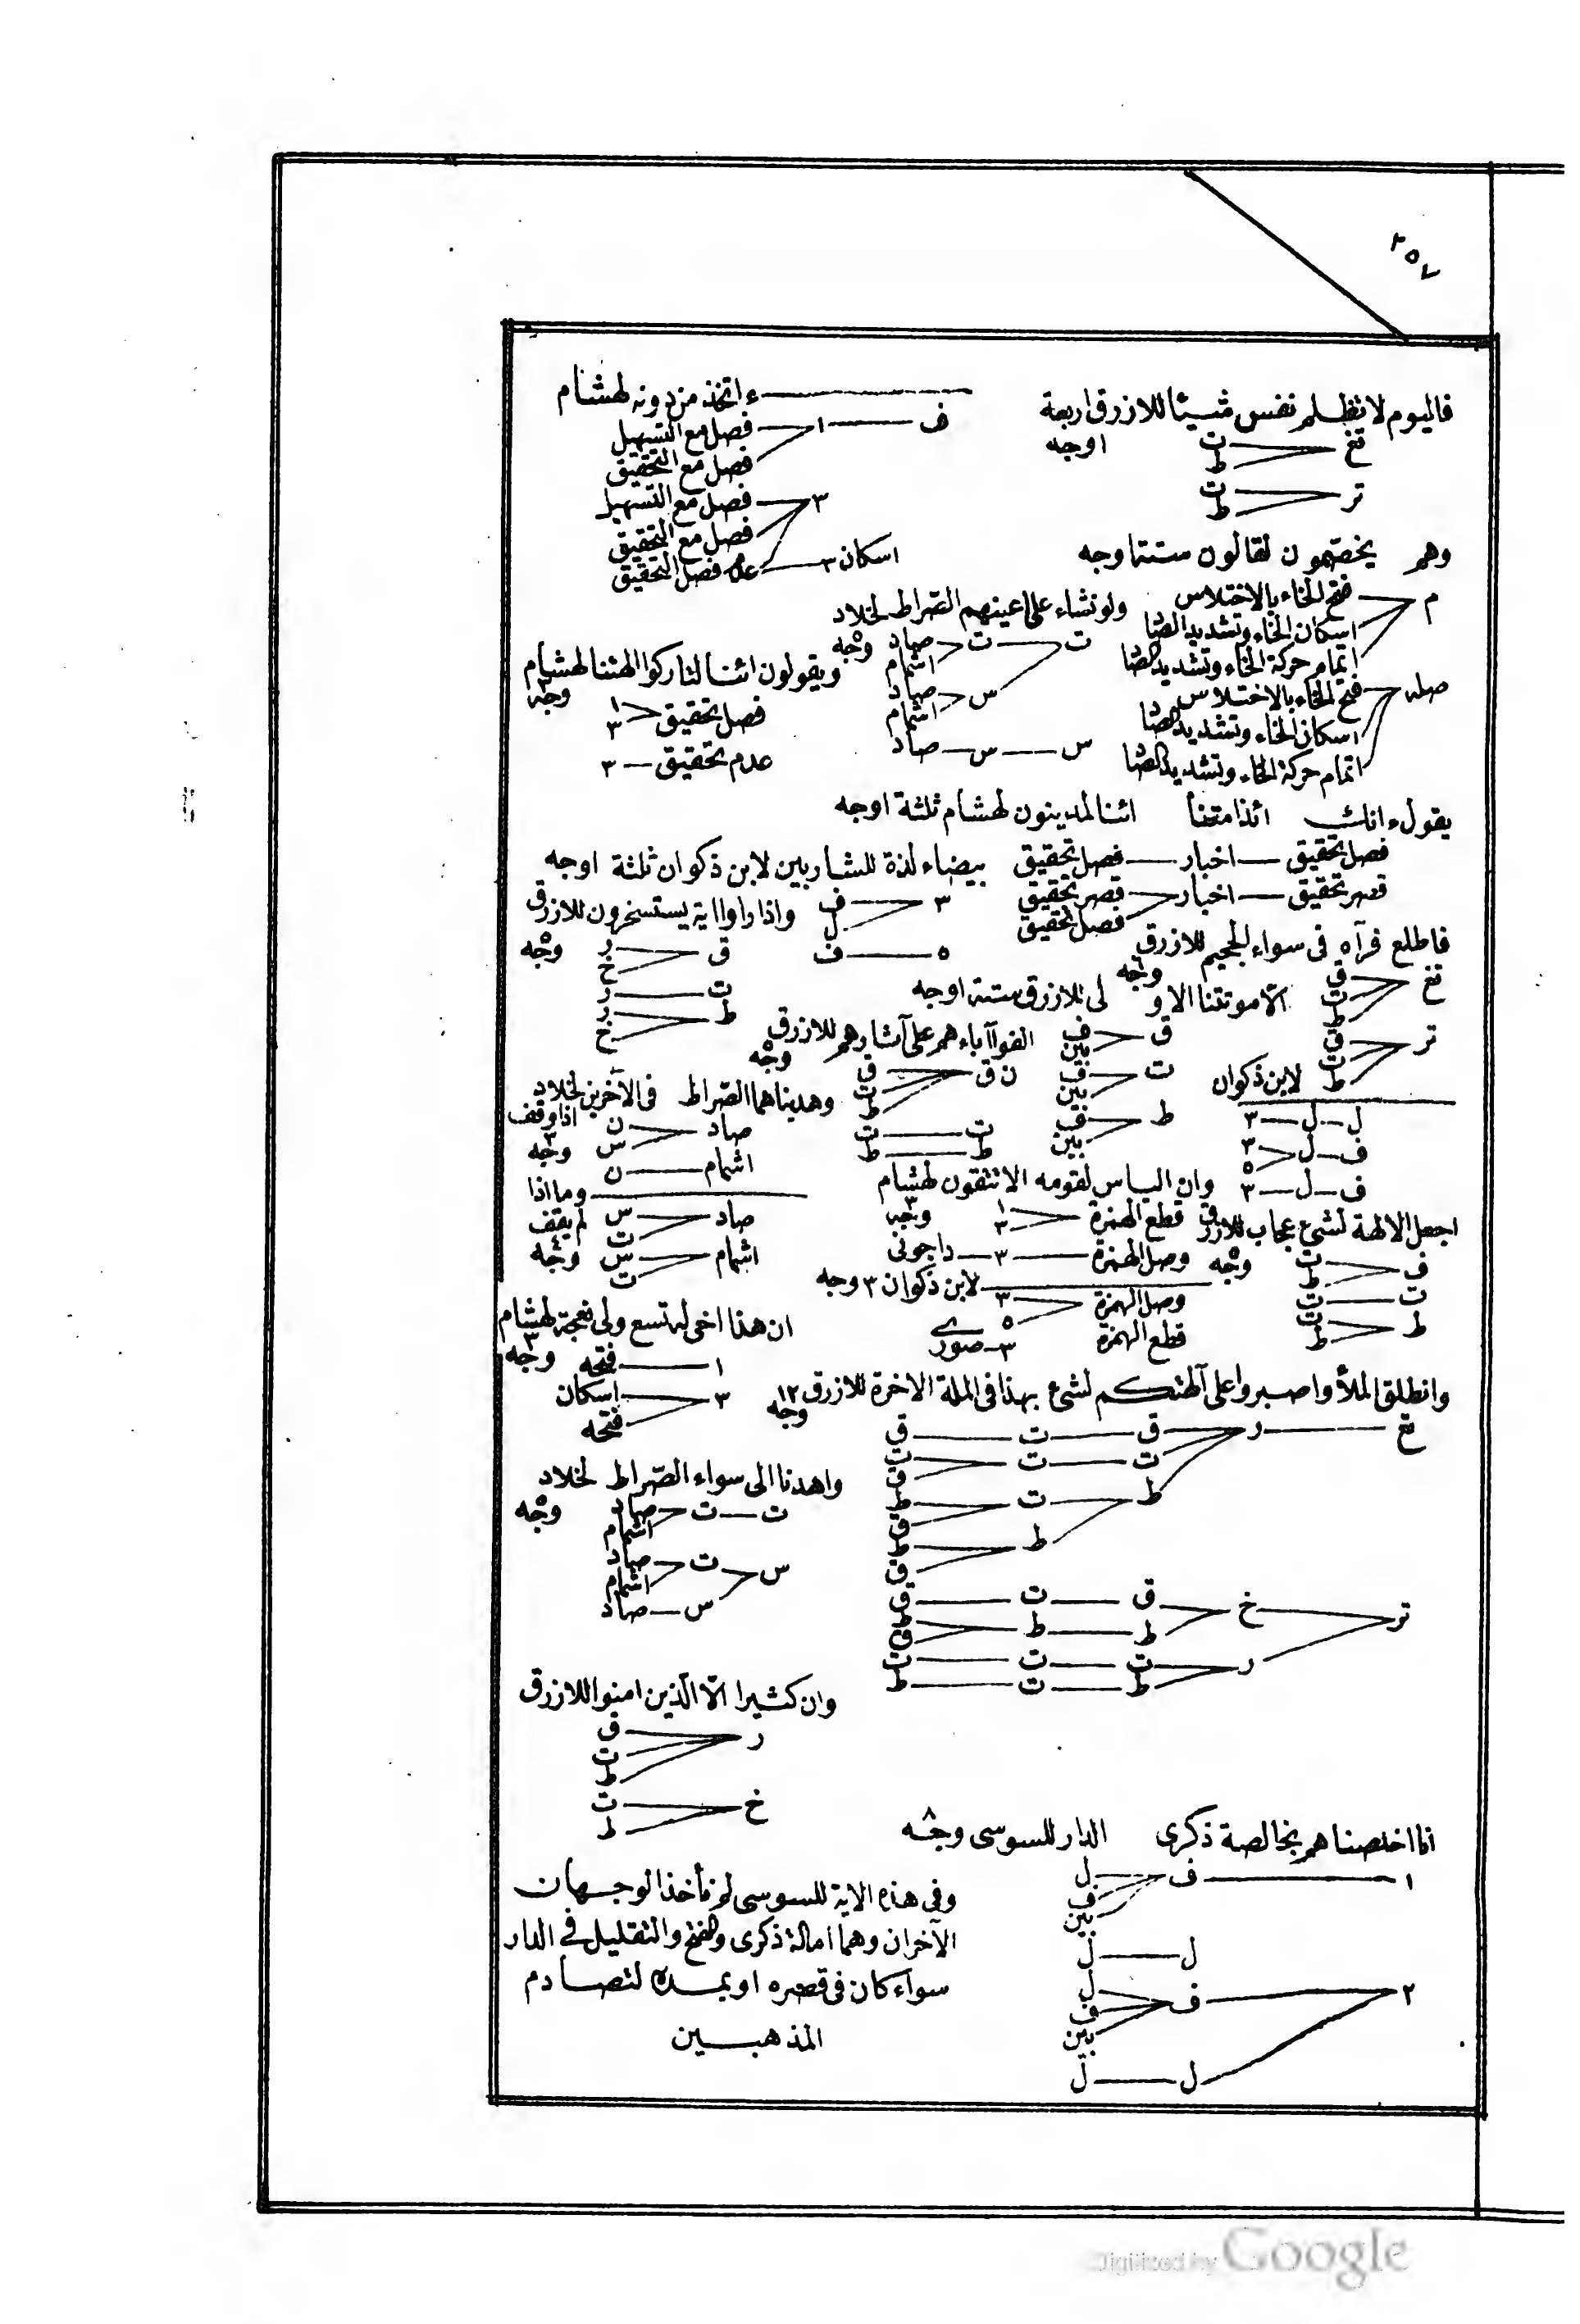 ٢٥٧
فاليوم لا تظلم نفس شيئا للازرق اربعة
اوجه
تغ ت
ط
تر ت
ط
ءاتخذ من دونه لهشام
ف ا فصل مع التسهيل
فصل مع التحقيق
٣ فصل مع التسهيل
فصل مع التحقيق
اسكان ٣ عدم فصل التحقيق
وهم يخصمون لقالون ستة اوجه
م فتح الخاء بالاختلاس
اسكان الخاء وتشديد الصاد
اتمام حركة الخاء وتشديد الصاد
صله فتح الخاء بالاختلاس
اسكان الخاء وتشديد الصاد
اتمام حركة الخاء وتشديد الصاد
ولو نشاء على اعينهم الصراط لخلاد
٥ وجه
ت ت صاد
اشمام
س صاد
اشمام
س س صاد
ويقولون ائنا لتاركوا الهتنا لهشام
٣ وجه
فصل تحقيق ١
٣
عدم تحقيق ٣
يقول ءانك ائذا متنا ائنا لمدينون لهشام ثلثة اوجه
فصل تحقيق اخبار فصل تحقيق
قصر تحقيق اخبار قصر تحقيق
فصل تحقيق
بيضاء لذة للشاربين لابن ذكوان ثلثة اوجه
٣ ف
ل
٥ ف
واذا راوا اية يستسخرون للازرق
٥ وجه
ق ر
خ
ت ر
ط ر
خ
فاطلع فرآه فى سواء الجحيم للازرق
٦ وجه
تغ ق
ت
ط
تر ق
ت
ط
الا موتتنا الاولى للازرق ستة اوجه
ق ف
بين
ت ف
بين
ط ف
بين
الفوا آباءهم على آثارهم للازرق
٥ وجه
ن ق ق
ت
ط
ت ت
ط ط
لابن ذكوان
ل ل ٣
ف ل ٣
٥
ف ل ٣
وهديناهما الصراط فى الآخرين لخلاد
اذا وقف
٣ وجه
صاد ن
س
اشمام ن
وما اذا
لم يقف
٤ وجه
صاد س
ت
اشمام س
ت
وان الياس لقومه الا تتقون لهشام
٣ وجه
قطع الهمزة ١
٣
وصل الهمزة ٣ داجونى
لابن ذكوان ٣ وجه
وصل الهمزة ٣
٥
قطع الهمزة ٣ صورى
اجعل الالهة لشئ عجاب للازرق
٥ وجه
ف ت
ط
ت ت
ط ت
ط
ان هذا اخى له تسع ولى نعجة لهشام
٣ وجه
١ فتحه
٣ اسكان
فتحه
وانطلق الملأ واصبروا على آلهتكم لشئ بهذا فى الملة الاخرة للازرق ١٢
وجه
تغ ر ق ت ق
ت ت ت
ق
ط ت ط
ق
ط ط
ق
تر خ ق ت ق
ط ط ط
ق
ر ت ت ت
ط ت ط
واهدنا الى سواء الصراط لخلاد
٥ وجه
ت ت صاد
اشمام
س ت صاد
اشمام
س صاد
وان كثيرا الا الذين امنوا للازرق
ر ق
ت
ط
خ ت
ط
انا اخلصناهم بخالصة ذكرى الدار للسوسى ٨ وجه
١ ف ل
ف
بين
ل ل
٢ ف ل
ف
بين
ل ل
وفى هذه الاية للسوسى لم نأخذ الوجهان
الآخران وهما امالة ذكرى والفتح والتقليل فى الدار
سواء كان فى قصره او بمده لتصادم
المذهبين
Digitized by Google